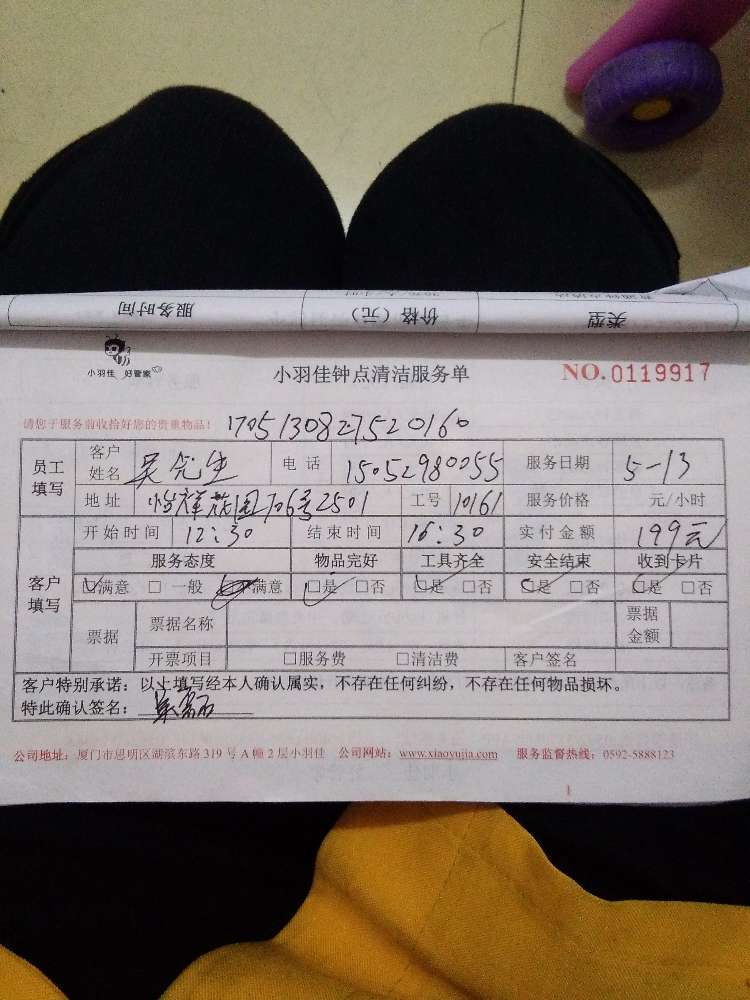 服务时间 价格（元） 类型
小羽佳 好管家
小羽佳钟点清洁服务单
NO. 0119917
请您于服务前收拾好您的贵重物品！ 1705130827520160
员工填写 客户姓名 吴先生 电话 15052980055 服务日期 5-13
地址 怡祥花园706号2501 工号 10161 服务价格 元/小时
客户填写 开始时间 12:30 结束时间 16:30 实付金额 199元
服务态度 物品完好 工具齐全 安全结束 收到卡片
☑满意 □一般 满意 ☑是 □否 ☑是 □否 ☑是 □否 ☑是 □否
票据 票据名称 票据金额
开票项目 □服务费 □清洁费 客户签名
客户特别承诺：以上填写经本人确认属实，不存在任何纠纷，不存在任何物品损坏。
特此确认签名：
公司地址：厦门市思明区湖滨东路 319 号 A 幢 2 层小羽佳 公司网站：www.xiaoyujia.com 服务监督热线：0592-5888123
1